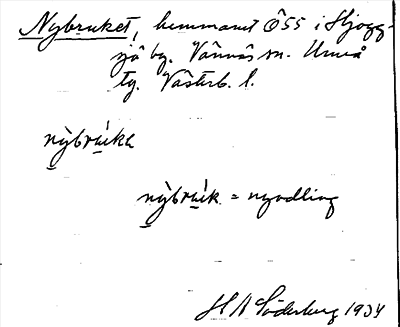 Nybruket, hemmanet Ö55 i Hjogg-
sjö by. Vännäs sn. Umeå
tg. Västerb. l.
nỳbrúka
nỳbrúk = nyodling
H A Söderberg 1934